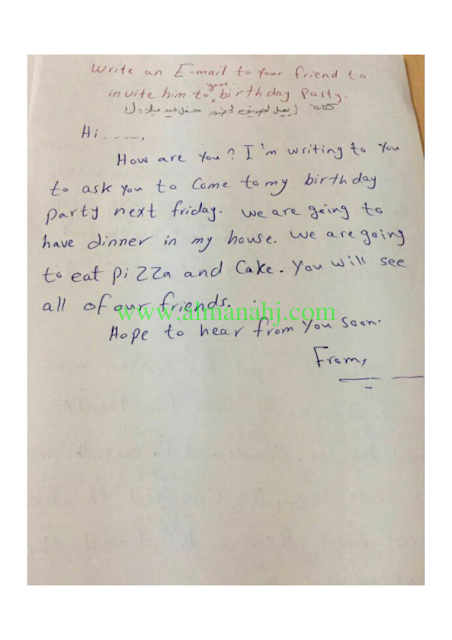 Write an E-mail to your friend to
your
invite him to birthday Party.
كتابة إيميل لصديقك لحضور حفل عيد ميلادك
Hi.....,
How are You? I'm writing to You
to ask you to Come to my birthday
Party next friday. we are going to
have dinner in my house. we are going
to eat Pizza and Cake. You will see
all of our friends.
www.almanahj.com
Hope to hear from You Soon.
From,